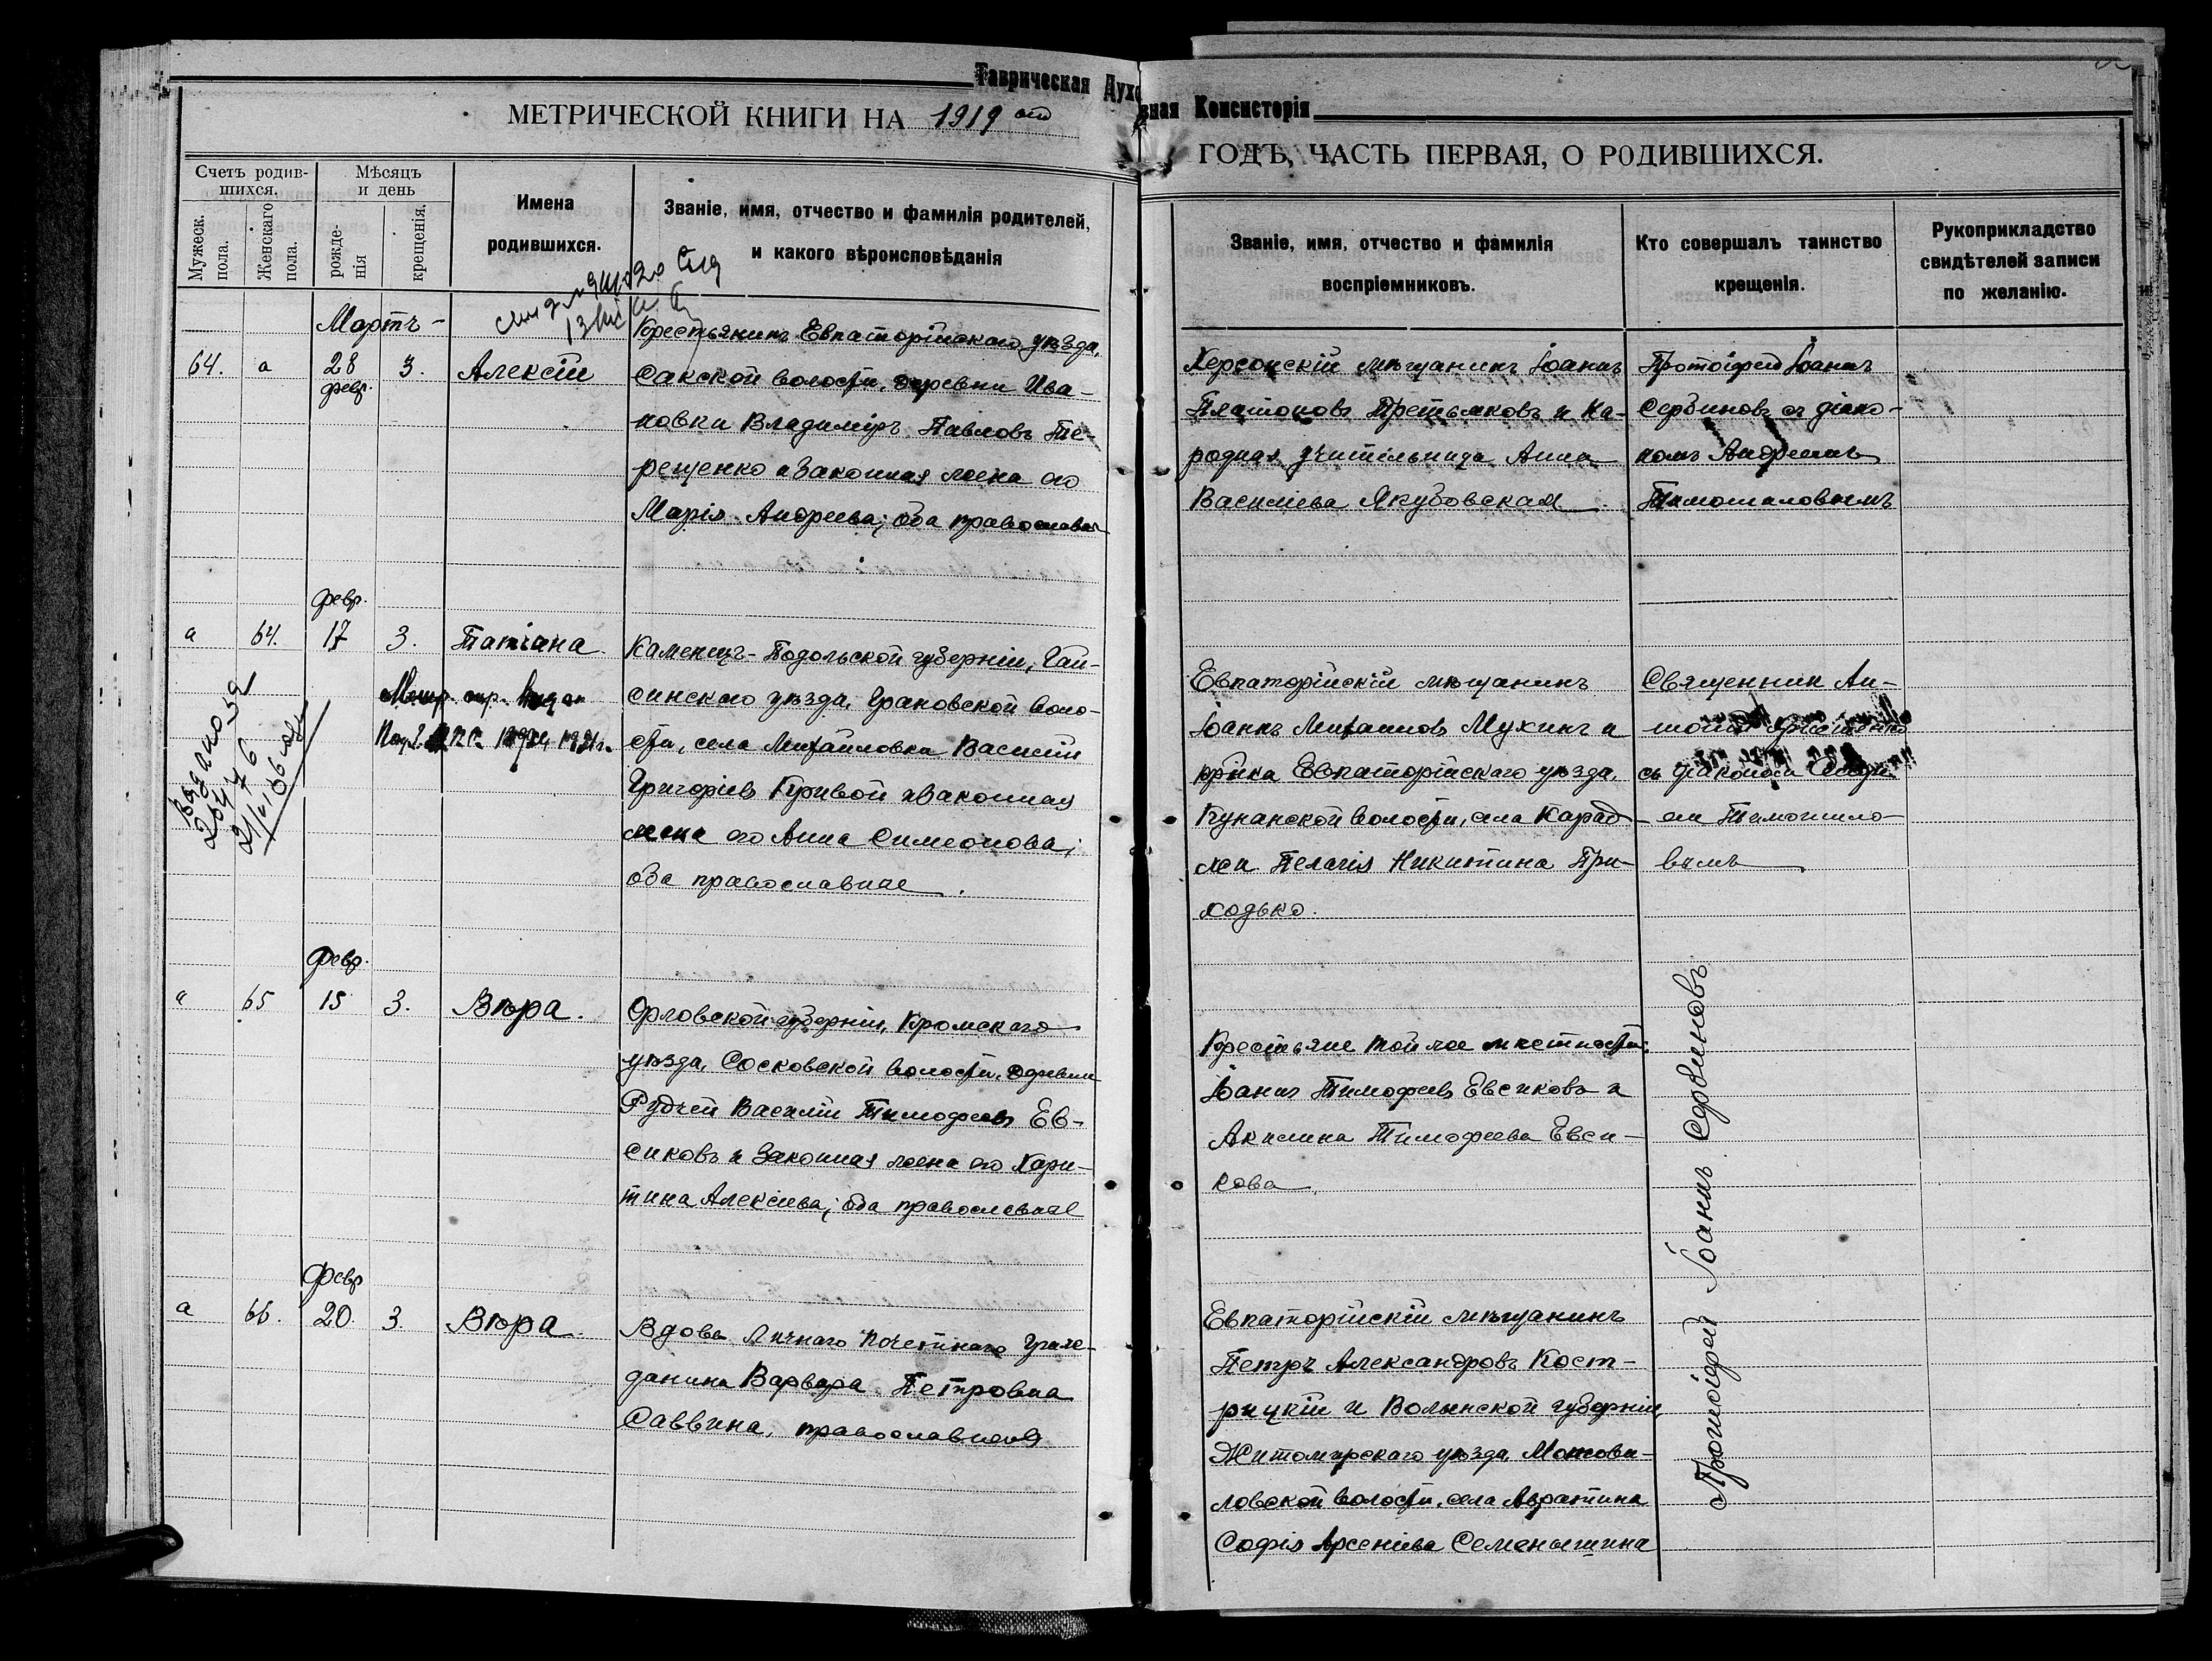 Таврическая Духовная Консисторія
МЕТРИЧЕСКОЙ КНИГИ НА 1919 ый
ГОДЪ, ЧАСТЬ ПЕРВАЯ, О РОДИВШИХСЯ.
Счетъ родив-
шихся.
Мужеск. пола.
Женскаго пола.
Мѣсяцъ
и день
рожде-
нія
крещенія.
Имена
родившихся.
Званіе, имя, отчество и фамилія родителей,
и какого вѣроисповѣданія
Званіе, имя, отчество и фамилія
воспріемниковъ.
Кто совершалъ таинство
крещенія.
Рукоприкладство
свидѣтелей записи
по желанію.
Мартъ
64. а 28 февр. 3. Алексій
Крестьянинъ Евпаторійскаго уѣзда,
Сакской волости, деревни Ива-
новки Владиміръ Павловъ Те-
рещенко и законная жена его
Марія Андреева; оба православ
Херсонскій мѣщанинъ Іоаннъ
Платоновъ Третьяковъ и На-
родная учительница Анна
Василіева Якубовская
Протоіерей Іоаннъ
Сербиновъ съ діако-
номъ Андреемъ
Тимошаловымъ
февр.
а 64. 17 3. Татіана.
Выдано 59
20476
Каменецъ-Подольской губерніи, Гай-
синскаго уѣзда, Грановской воло-
сти, села Михайловки Василій
Григоріевъ Кривой и законная
жена его Анна Симеонова;
оба православные.
Евпаторійскій мѣщанинъ
Іоаннъ Михаиловъ Мухинъ и
кр-нка Евпаторійскаго уѣзда,
Кунанской волости, села Карад
жи Пелагія Никитина При-
ходько.
Священникъ Ан-
съ діакономъ Андре-
емъ Тимошало-
вымъ
февр.
а 65 15 3. Вѣра.
Орловской губерніи, Кромскаго
уѣзда, Сосковской волости, деревни
Рудчей Василій Тимофеевъ Ев-
сиковъ и законная жена его Хари-
тина Алексіева; оба православные
Крестьяне той же мѣстности:
Іоаннъ Тимофеевъ Евсиковъ и
Акилина Тимофеева Евси-
кова
февр
а 66. 20. 3. Вѣра.
Вдова Личнаго Почетнаго Граж-
данина Варвара Петровна
Саввина, православная
Евпаторійскій мѣщанинъ
Петръ Александровъ Кост-
рицкій и Волынской губерніи,
Житомирскаго уѣзда,
ловской волости, села Авратина
Софія Арсеніева Семенышина
Протоіерей Іоаннъ Сербиновъ